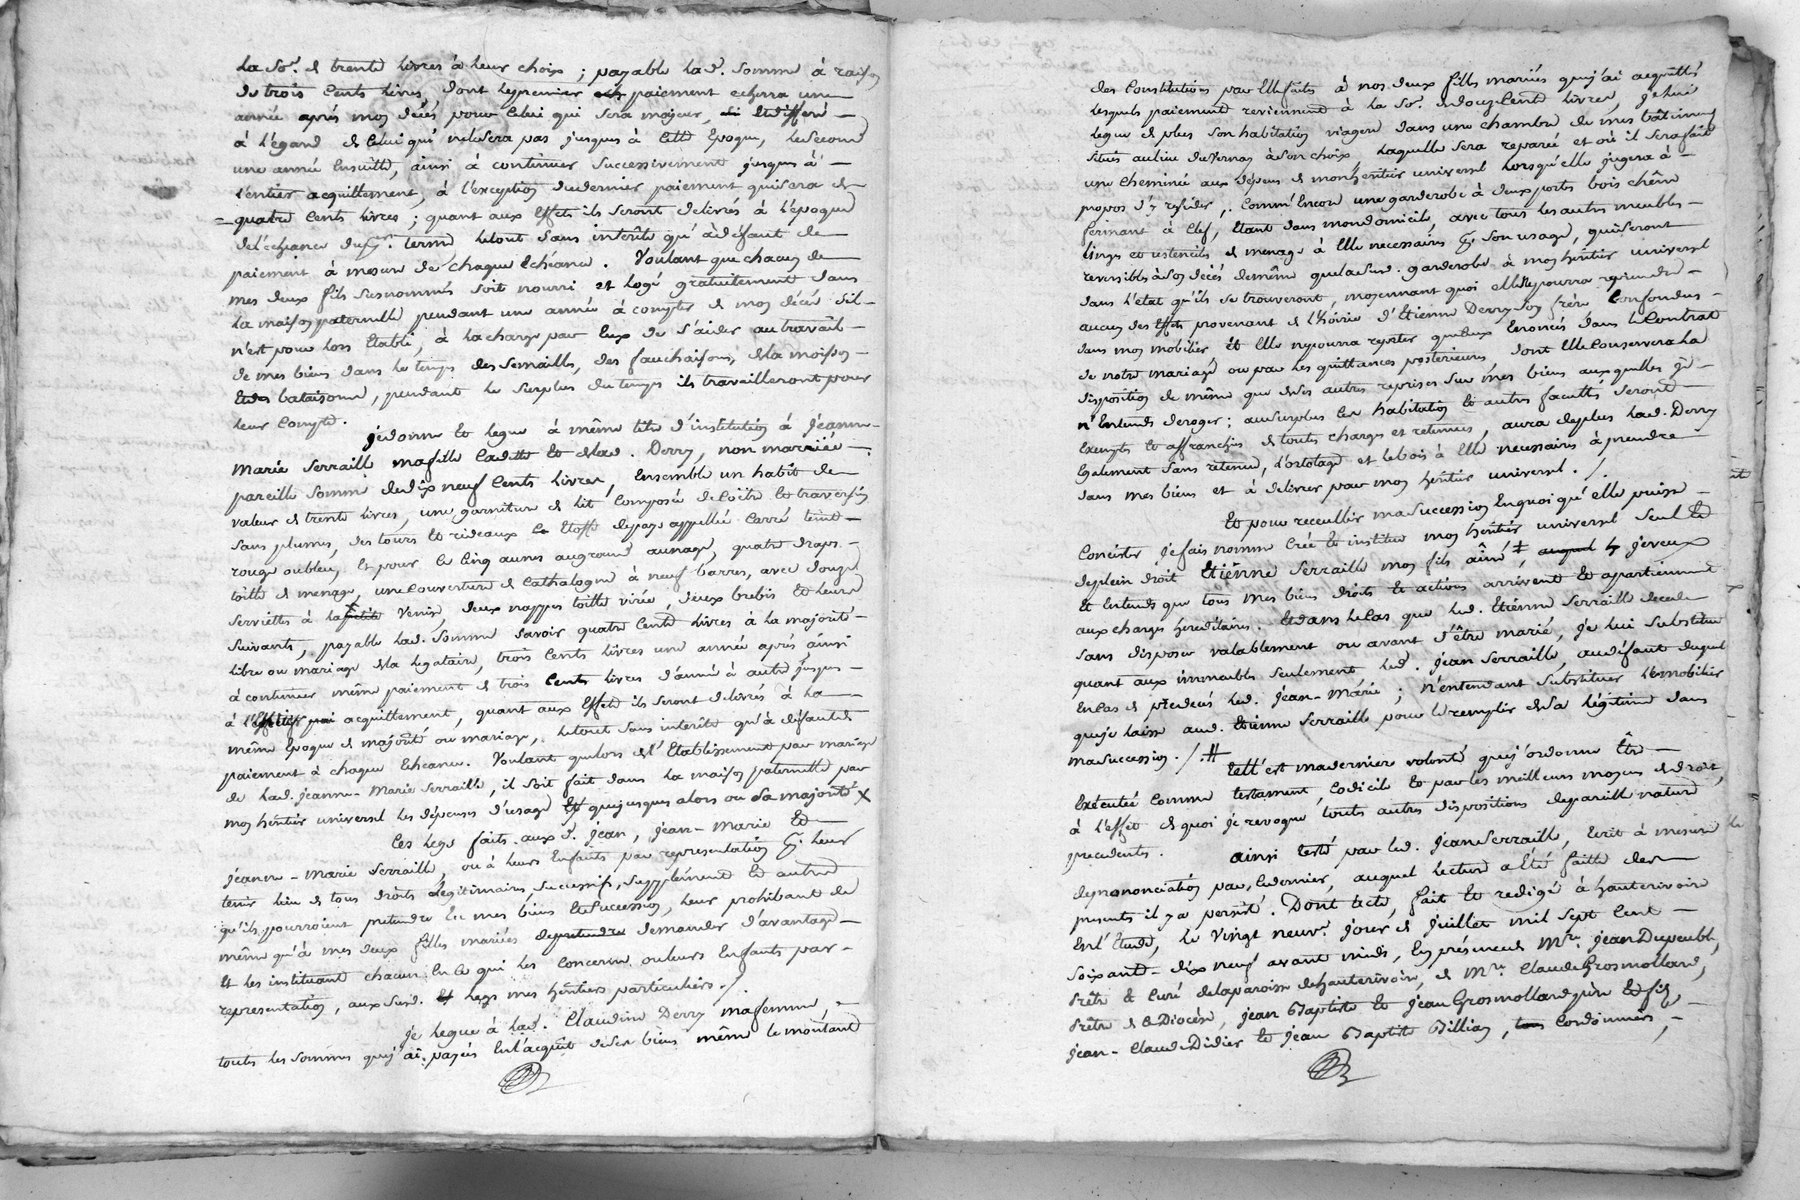 la so.e de trente livres à leur choix ; payable lad. somme à raison
de trois cents livres dont le premier paiement echerra une
année après mon décés pour celui qui sera majeur, et differé
à l'égard de celui qui ne le sera pas jusques à cette epoque, le second
une année ensuitte, ainsi à continuer successivement jusques à
l'entier acquittement, à l'exception du dernier paiement qui sera de
quatre cents livres ; quant aux effets ils seront delivrés à l'époque
de l'echeance du p.er terme le tout sans interêts qu'à défaut de
paiement à mesure de chaque echéance. Voulant que chacun de
mes deux fils susnommés soit nourri et logé gratuitement dans
la maison paternelle pendant une année à compter de mon décés s'il
n'est pour lors établi, à la charge par eux de s'aider au travail
de mes biens dans le temps des semailles, des fauchaisons, de la moisson
et des bataisons, pendant le surplus du temps ils travailleront pour
leur compte.
je donne et legue à même titre d'institution à jeanne
Marie Serraille ma fille cadette et de lad. Derry, non mariée
pareille somme de dix neuf cents livres, ensemble un habit de
valeur de trente livres, une garniture de lit composée de coëtre et traversin
sans plumes, des tours et rideaux etoffe du pays appellée carré teint
rouge ou bleu, et pour le cinq aunes au grand aunage, quatre draps
toille de menage, une couverture de Cathalogne à neuf barres, avec douze
serviettes à la Venise, deux nappes toille virée, deux brebis et leurs
suivants, payable lad. somme savoir quatre cents livres à la majorité
libre ou mariage de la legataire, trois cents livres une année après, ainsi
à continuer même paiement de trois cents livres d'année à autre jusques
à l'entier acquittement, quant aux effets ils seront delivrés à la
même epoque de majorité ou mariage, le tout sans interêts qu'à défaut de
paiement à chaque echeance. Voulant que lors de l'etablissement par mariage
de lad. jeanne-Marie Serraille, il soit fait dans la maison paternelle par
mon héritier universel les dépenses d'usage et que jusques alors ou sa majorité x
Les legs faits auxd. jean, jean-Marie et
jeanne-Marie Serraille, ou à leurs enfants par representation p.r leur
tenir lieu de tous droits légitimaires, successifs, supplément et autres
qu'ils pourroient pretendre en mes biens et succession, leur prohibant de
même qu'à mes deux filles mariées demander d'avantage
et les instituant chacun en ce qui les concerne ou leurs enfants par
representation, auxsusd. legs mes héritiers particuliers./.
je legue à lad. Claudine Derry ma femme,
touts les sommes que j'ai payés en l'acquit de ses biens même le montant
des constitutions par elle faits à nos deux fills mariés que j'ai acquittés
lesquels paiement reviennent à la so.e de douze cents livres, je lui
legue de plus son habitation viagere dans une chambre de mes bâtiments
situés au lieu du Vernay à son choix, laquelle sera reparée et où il sera fait
une cheminée aux dépens de mon heritier universel lorsqu'elle jugera à
propos d'y resider, comm'encore une garderobe à deux portes bois chêne
fermant à clef, etant dans mon domicile, avec tous les autres meubles
linges et ustenciles de menage à elle necessaires p.r son usage, qui seront
reversibles à son décés de même que la susd. garderobe à mon héritier universel
dans l'etat qu'ils se trouveront, moyennant quoi elle ne pourra reprendre
aucun des effets provenant de l'hoirie d'Etienne Derry son frère confondus
dans mon mobilier, et elle ne pourra repeter que ceux enoncés dans le contrat
de notre mariage ou par les quittances posterieures dont elle conservera la
disposition de même que de ses autres reprises sur mes biens auxquelles je
n'entends deroger ; au surplus les habitation et autres facultés seront
exempts et affranchis de toutes charges et retenues, aura de plus lad. Derry
egalement sans retenue, l'ortolage et le bois à elle necessaires à prendre
dans mes biens et à delivrer par mon héritier universel./
Et pour receullir ma succession en quoi qu'elle puisse
concister je fais nomme crée et institue mon héritier universel seul et
de plein droit Etiênne Serraille mon fils aîné, je veux
et entends que tous mes biens droits et actions arrivent et appartiennent
aux charges hereditaires. Et dans le cas que led. Etiénne Serraille decede
sans disposer valablement ou avant d'être marié, je lui substitue
quant aux immeubles seulement led. jean Serraille, au défaut duquel
en cas de prédecés led. jean-Marie ; n'entendant substituer le mobilier
que je laisse aud. Etiénne Serraille pour le remplir de sa légitime dans
ma succession./.#
Tell'est ma derniere volonté que j'ordonne être
exécutée comme testament, codicile et par les meilleurs moyens de droit,
à l'effet de quoi je revoque touts autres dispositions de pareille nature
precedentes. ainsi testé par led. jean Serraille, ecrit à mesure
de prononciation par ce dernier, auquel lecture a été faitte des
presents il y a persisté. Dont acte, fait et redigé à hauterivoire
en l'étude, le vingt neuv.e jour de juillet mil sept cent
soixante-dix neuf avant midi, en présence de M.re jean Dupeuble,
Prêtre et curé de la paroisse de hauterivoire, de M.re Claude Grosmollard,
Prêtre de ce Diocése, jean Baptiste et jean Grosmollard père et fils,
jean-Claude Didier et jean Baptiste Billiay, cordonniers,